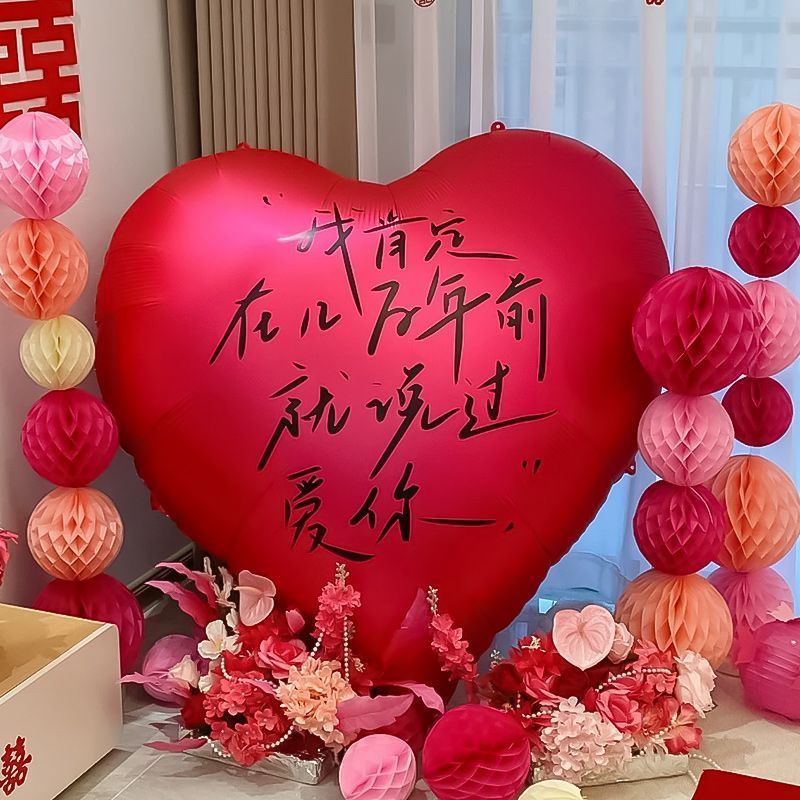 囍
“我肯定
在几百年前
就说过
爱你，”
囍